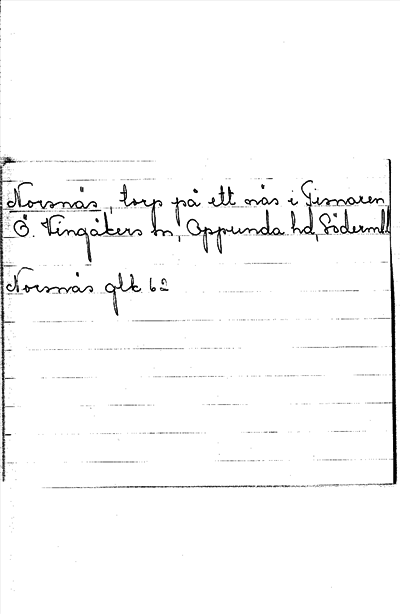 Norsnäs, torp på ett näs i Tisnaren
Ö. Vingåkers sn, Oppunda hd, Söderml
Norsnäs glk 62